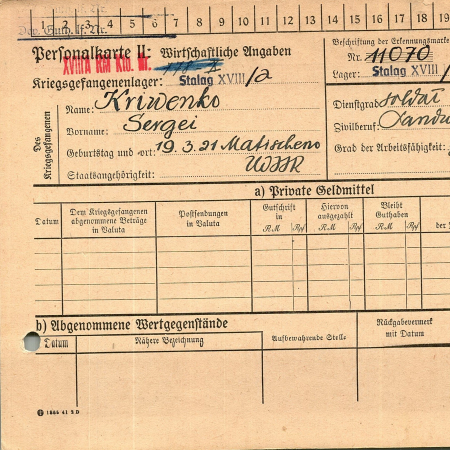 1 2 3 4 5 6 7 8 9 10 11 12 13 14 15 16 17 18 19
Dev. Guth. lf. Nr.
Personalkarte II: Wirtschaftliche Angaben
XVIIIA RM Kto. Nr.
Kriegsgefangenenlager: Stalag XVIII/a
Beschriftung der Erkennungsmarke
Nr. 11070
Lager: Stalag XVIII/
Des Kriegsgefangenen
Name: Kriwenko
Vorname: Sergei
Geburtstag und -ort: 19.3.21 Matischeno
Staatsangehörigkeit: UDSSR
Dienstgrad: Soldat
Zivilberuf: Landw
Grad der Arbeitsfähigkeit:
a) Private Geldmittel
Datum
Dem Kriegsgefangenen abgenommene Beträge in Valuta
Postsendungen in Valuta
Gutschrift in
RM Rpf
Hiervon ausgezahlt
RM Rpf
Bleibt Guthaben
RM Rpf
der
b) Abgenommene Wertgegenstände
Datum
Nähere Bezeichnung
Aufbewahrende Stelle
Rückgabevermerk mit Datum